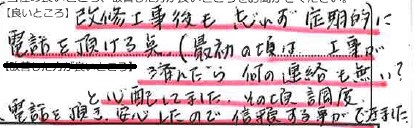 【良いところ】
改修工事後も忘れず定期的に
電話を頂ける点(最初の頃は工事が
済んだら何の連絡も無い?
と心配してました。その頃調度
電話を頂き、安心したので信頼する事ができました